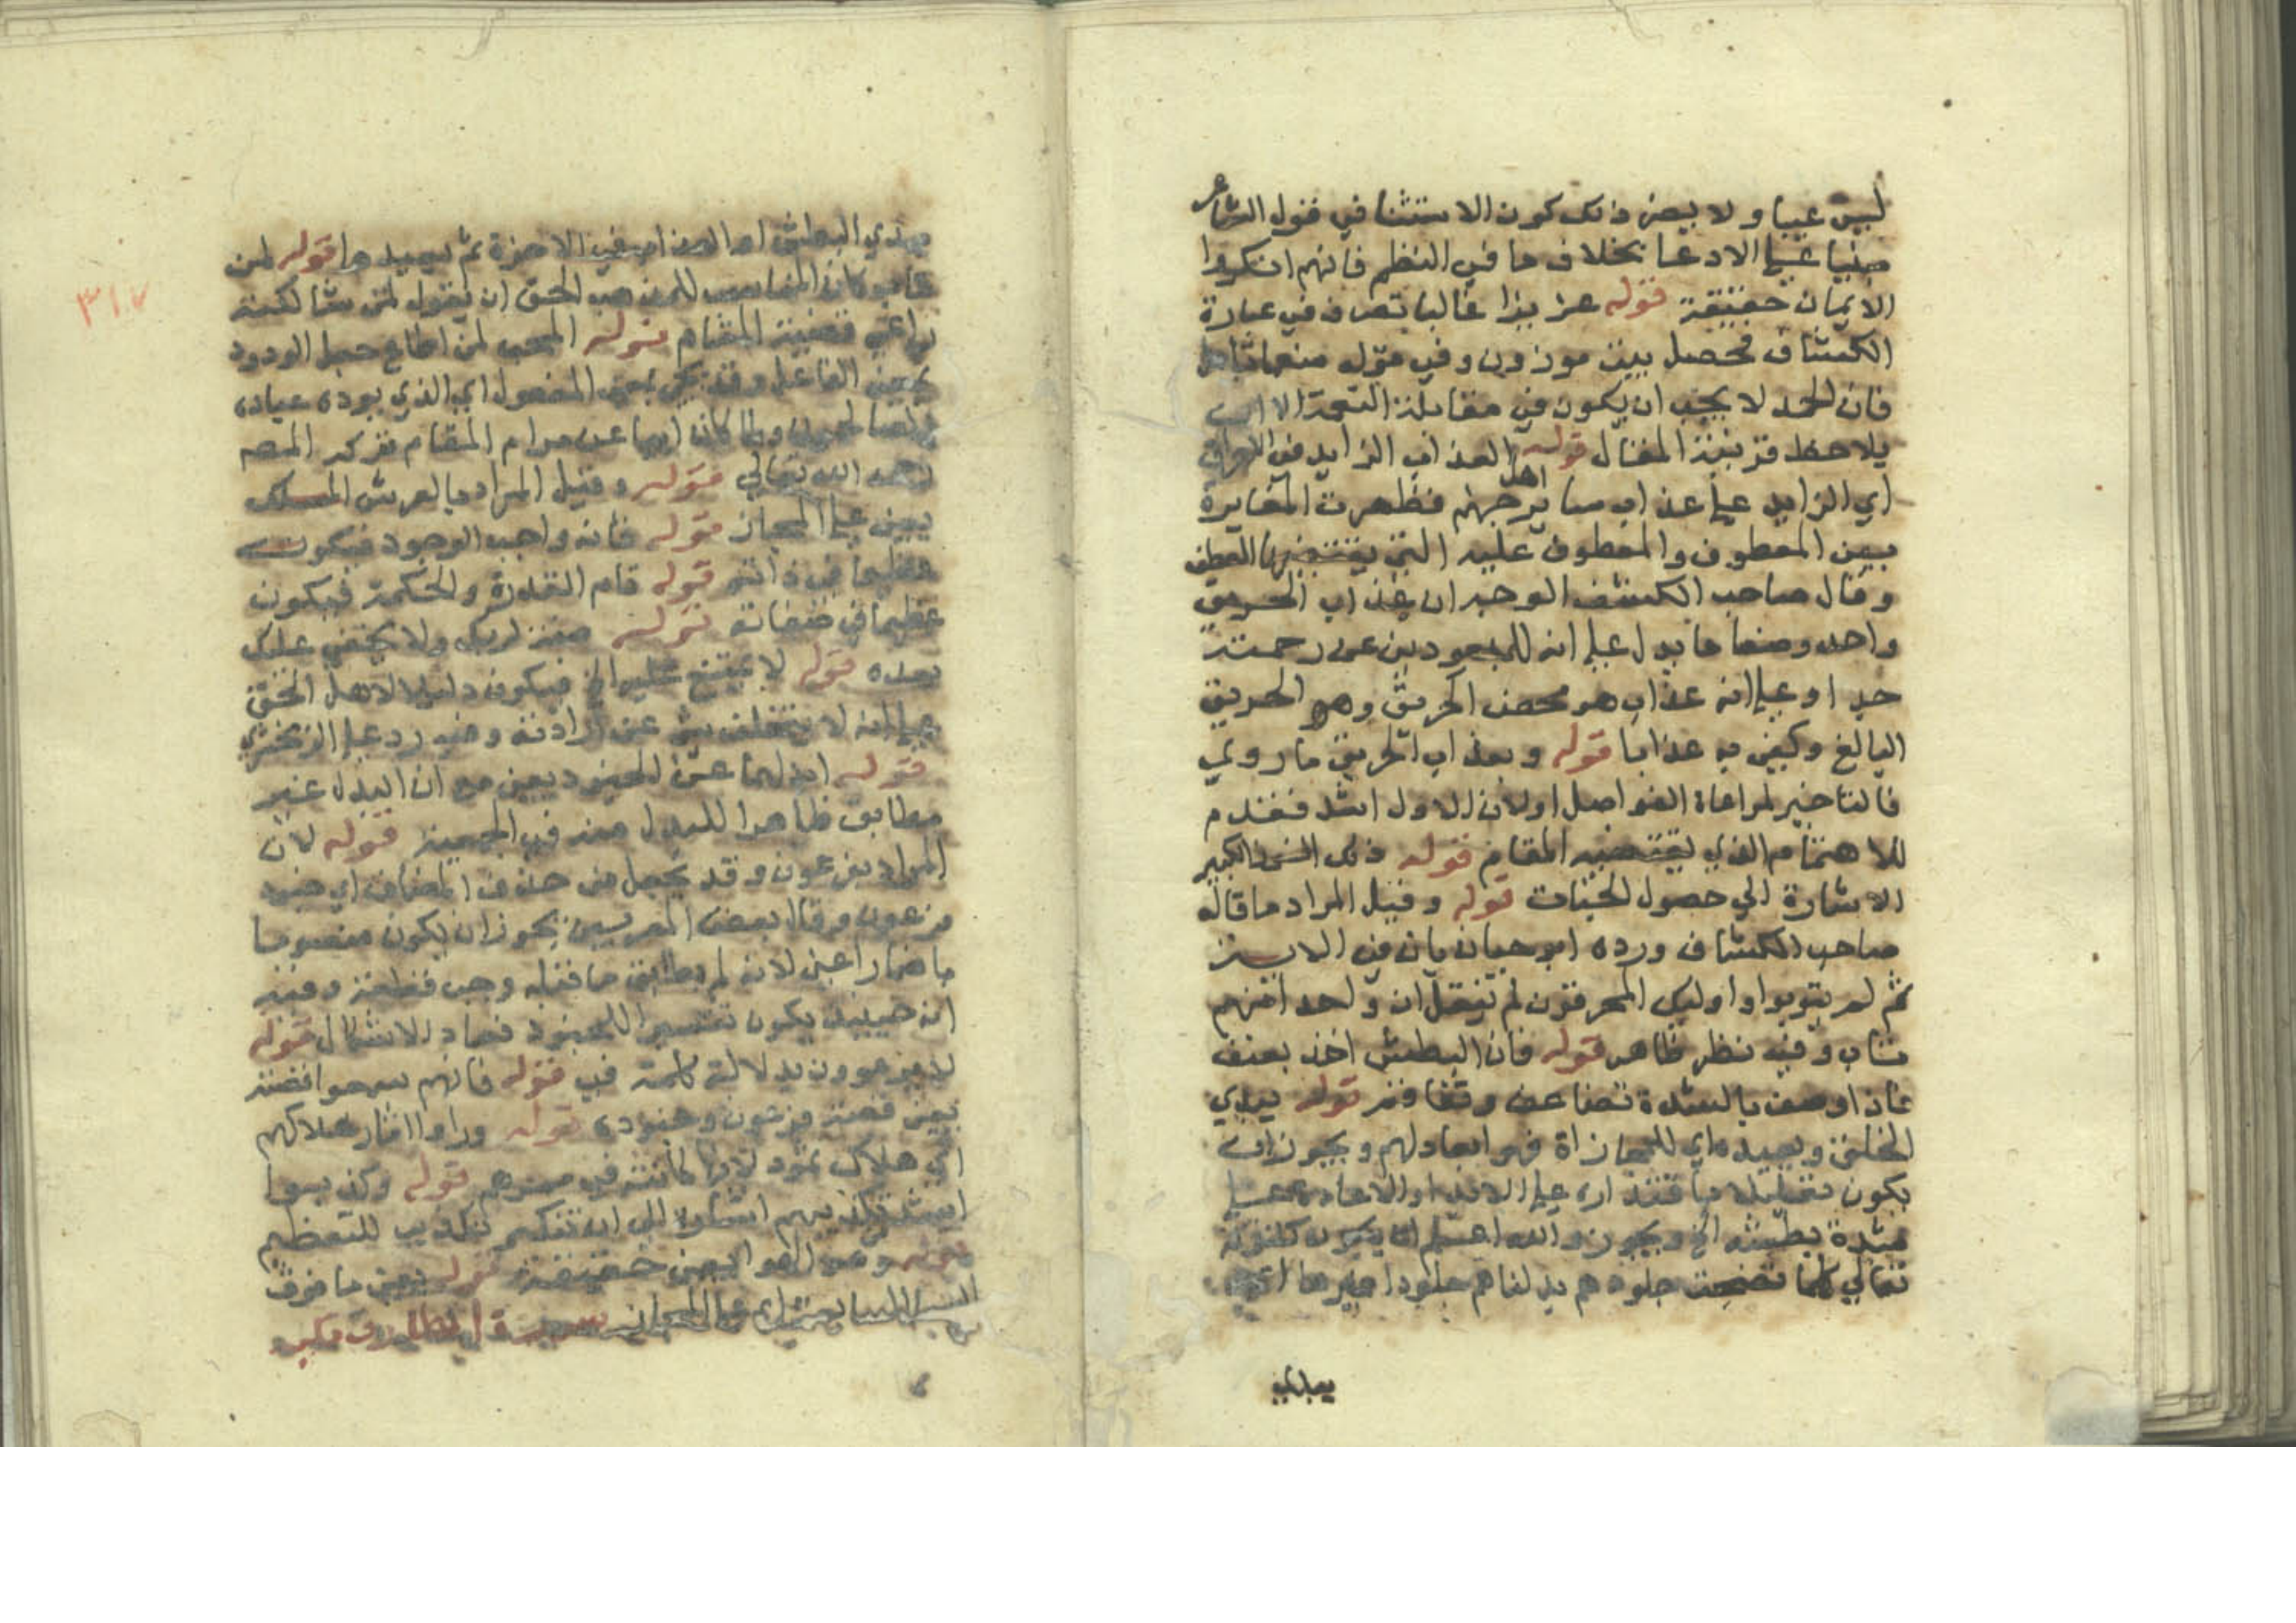 ليس عيبا ولا يضر ذلك كون الاستثنا في قول الشاعر
مبنيا علي الادعا بخلاف ما في النظم فانهم انكروا
الايمان حقيقة قوله عزيزا غالبا تصرف في عبارة
الكشاف فحصل بين موزون وفي قوله منعما
فان الحمد لا يجب ان يكون في مقابلة النعمة الا ان
يلاحظ قرينة المقال قوله العذاب الزايد في الاحراق
اي الزايد علي عذاب ساير اهل جهنم فظهرت المغايرة
بين المعطوف والمعطوف عليه التي يقتضيها العطف
وقال صاحب الكشف الوجه ان عذاب الحريق
واحد وصفا ما يدل علي انه للمبعودين عن رحمته
جدا وعلي انه عذاب هو محض الحريق وهو الحريق
البالغ وكفي به عذابا قوله وبعذاب الحريق ما روي
فالتاخير لمراعاة الفواصل اولان الاول اشد فقدم
للاهتمام الذي يقتضيه المقام قوله ذلك الفوز الكبير
الاشارة الي حصول الجنات قوله وقيل المراد ما قاله
صاحب الكشاف ورده ابو حيان بان في الاية
ثم لم يتوبوا واوليك المحرقون لم ينقل ان واحدا منهم
تاب وفيه نظر ظاهر قوله فان البطش اخذ بعنف
فاذا وصف بالشدة تضاعف وتفاقم قوله يبدي
الخلق ويعيده اي للمجازاة فهو ابعاد لهم ويجوز ان
يكون تعليلا باقتداره علي الابدا والاعادة علي
شدة بطشه الخ ويجوز والله اعلم ان يكون كقوله
تعالي كلما نضجت جلودهم بدلناهم جلودا غيرها اي
يبدي
٣١٧
يبدي البطش او العذاب في الاخرة ثم يعيدها قوله لمن
تاب وكان المناسب لمذهب الحق ان يقول لمن شا لكنه
راعي قضية المقام قوله المحب لمن اطاع جعل الودود
بمعني الفاعل وقد يجي بمعني المفعول اي الذي يوده عباده
الصالحون ولما كان ابها عن مرام المقام تركه المص
رحمه الله تعالي قوله وقيل المراد بالعرش الملك
يعني علي المجاز قوله فانه واجب الوجود فيكون
عظيما في ذاته قوله تام القدرة والحكمة فيكون
عظيما في صفاته قوله صفة لربك ولا يخفي عليك
بعده قوله لا يمتنع عليه الخ فيكون دليلا لاهل الحق
علي انه لا يتخلف شي عن ارادته وفيه رد علي الزمخشري
قوله ابدلهما عن الجنود يعني مع ان البدل غير
مطابق ظاهرا للمبدل منه في الجمعية قوله لان
المراد بفرعون وقد يجعل من حذف المضاف اي جنود
فرعون وقال بعض المعربين يجوز ان يكون منصوبا
باضمار اعني لانه لم يطابق ما قبله وجب قطعه وفيه
انه حينيذ يكون تفسيرا للجنود فعاد الاشكال قوله
لا يرعوون بدلالة كلمة في قوله فانهم سمعوا قصته
يعني قصة فرعون وجنوده قوله وراوا اثار هلاكهم
اي هلاك ثمود لانها كانت في ممرهم قوله وكذبوا
اشد من تكذيبهم اشارة الي ان تنكير تكذيب للتعظيم
قوله وهو الهوا يعني حقيقة قوله يعني ما فوق
السما السابعة علي المجاز سورة الطارق مكية